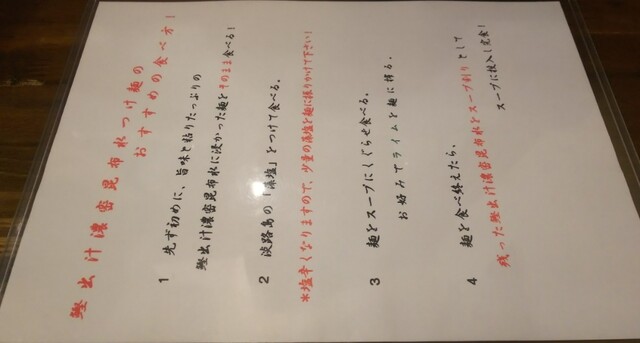 鰹出汁濃密昆布水つけ麺の
おすすめの食べ方！
1 先ず初めに、旨味と粘りたっぷりの
鰹出汁濃密昆布水に浸かった麺をそのまま食べる！
2 淡路島の「藻塩」をつけて食べる。
*塩辛くなりますので、少量の藻塩を麺に振りかけて下さい！
3 麺をスープにくぐらせ食べる。
お好みでライムを麺に搾る。
4 麺を食べ終えたら、
残った鰹出汁濃密昆布水をスープ割りとして
スープに投入し完食！